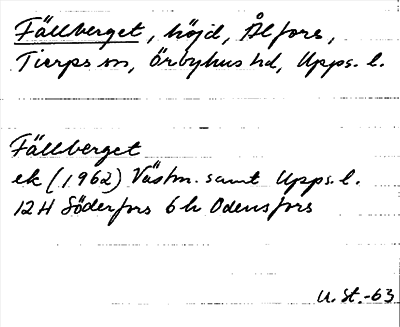 Fällberget, höjd, Ålfors,
Tierps sn, Örbyhus hd, Upps. l.
Fällberget
ek (1962) Västm. samt Upps. l.
12H Söderfors 6h Odensfors
U. St. -63